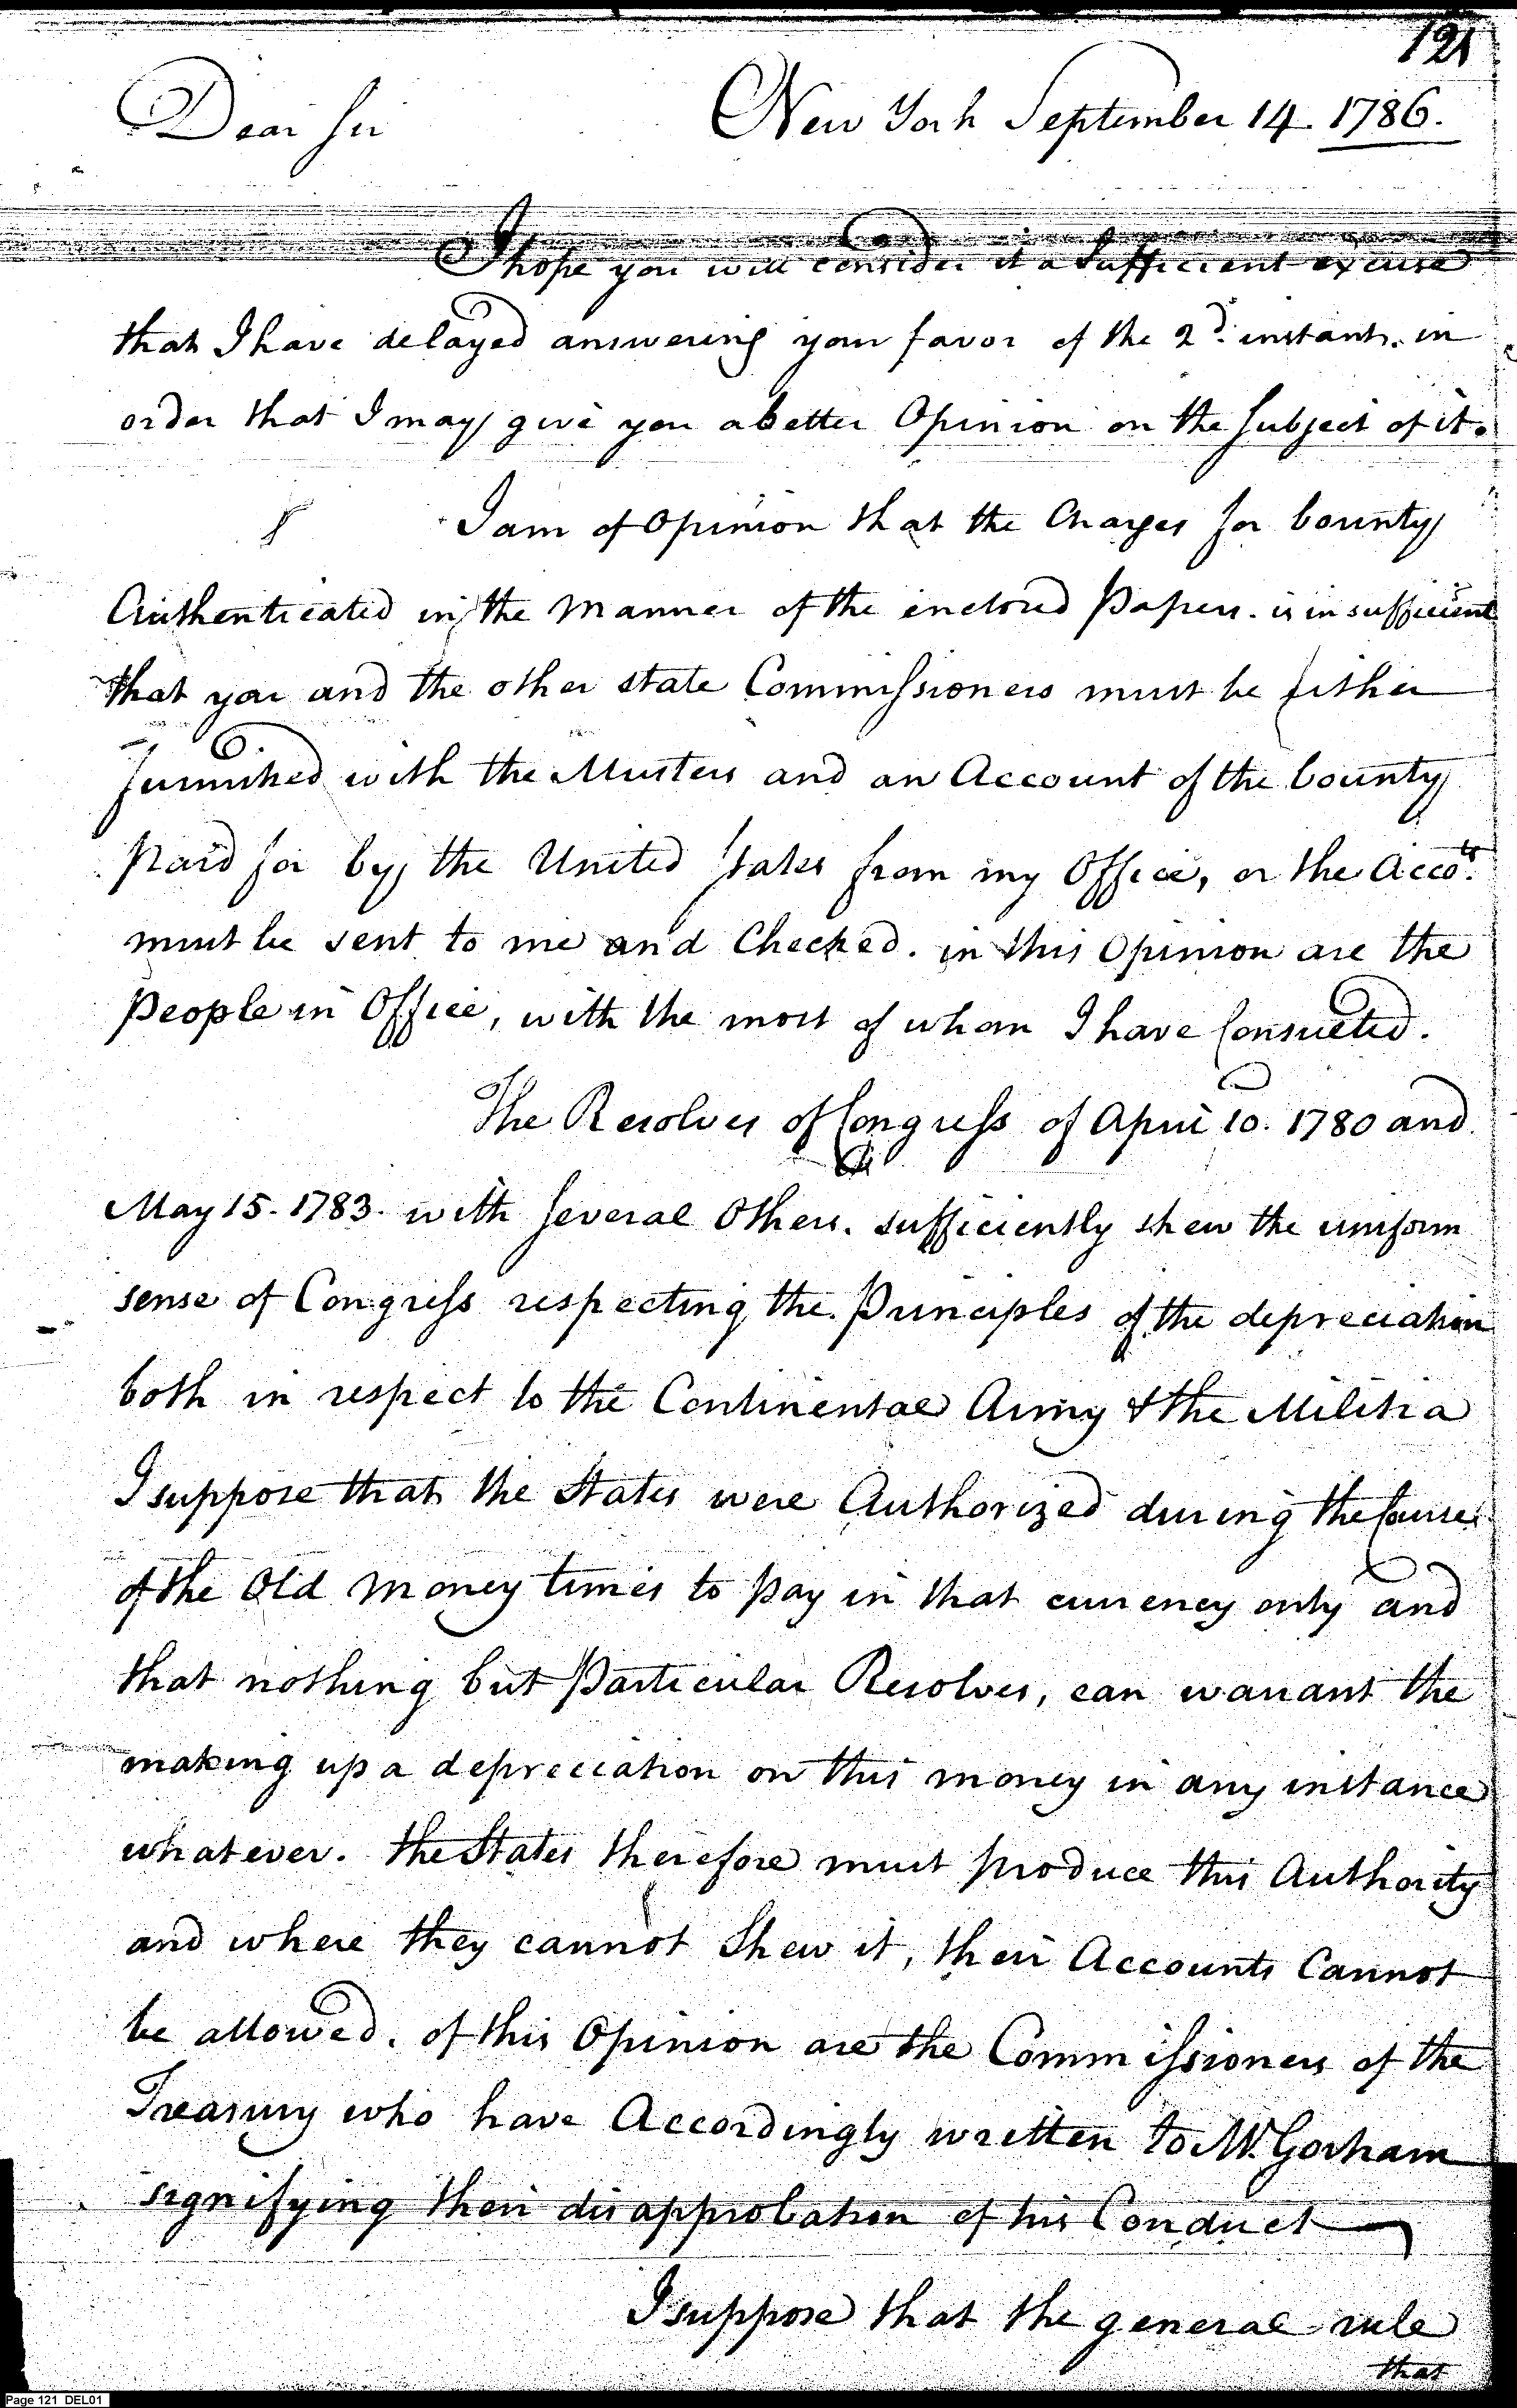 121
Dear Sir New York September 14. 1786.
I hope you will consider it a Sufficient excuse
that I have delayed answering your favor of the 2d. instant. in
order that I may give you a better Opinion on the Subject of it.
I am of Opinion that the Charges for bounty
Authenticated in the Manner of the enclosed Papers. is insufficient
that you and the other state Commissioners must be either
furnished with the Musters and an Account of the bounty
paid for by the United States from my Office, or the Accots.
must be sent to me and Checked. in this Opinion are the
People in Office, with the most of whom I have Consulted.
The Resolves of Congress of April 10. 1780 and
May 15. 1783. with Several Others. sufficiently shew the uniform
sense of Congress respecting the Principles of the depreciation
both in respect to the Continental Army & the Militia
I suppose that the States were Authorized during the Course
of the Old Money times to pay in that currency only and
that nothing but Particular Resolves, can warrant the
making up a depreciation on this money in any instance
whatever. the States therefore must produce this Authority
and where they cannot Shew it, their Accounts Cannot
be allowed. of this Opinion are the Commissioners of the
Treasury who have Accordingly written to Mr. Gorham
signifying their disapprobation of his Conduct
I suppose that the general rule
that
Page 121 DEL01